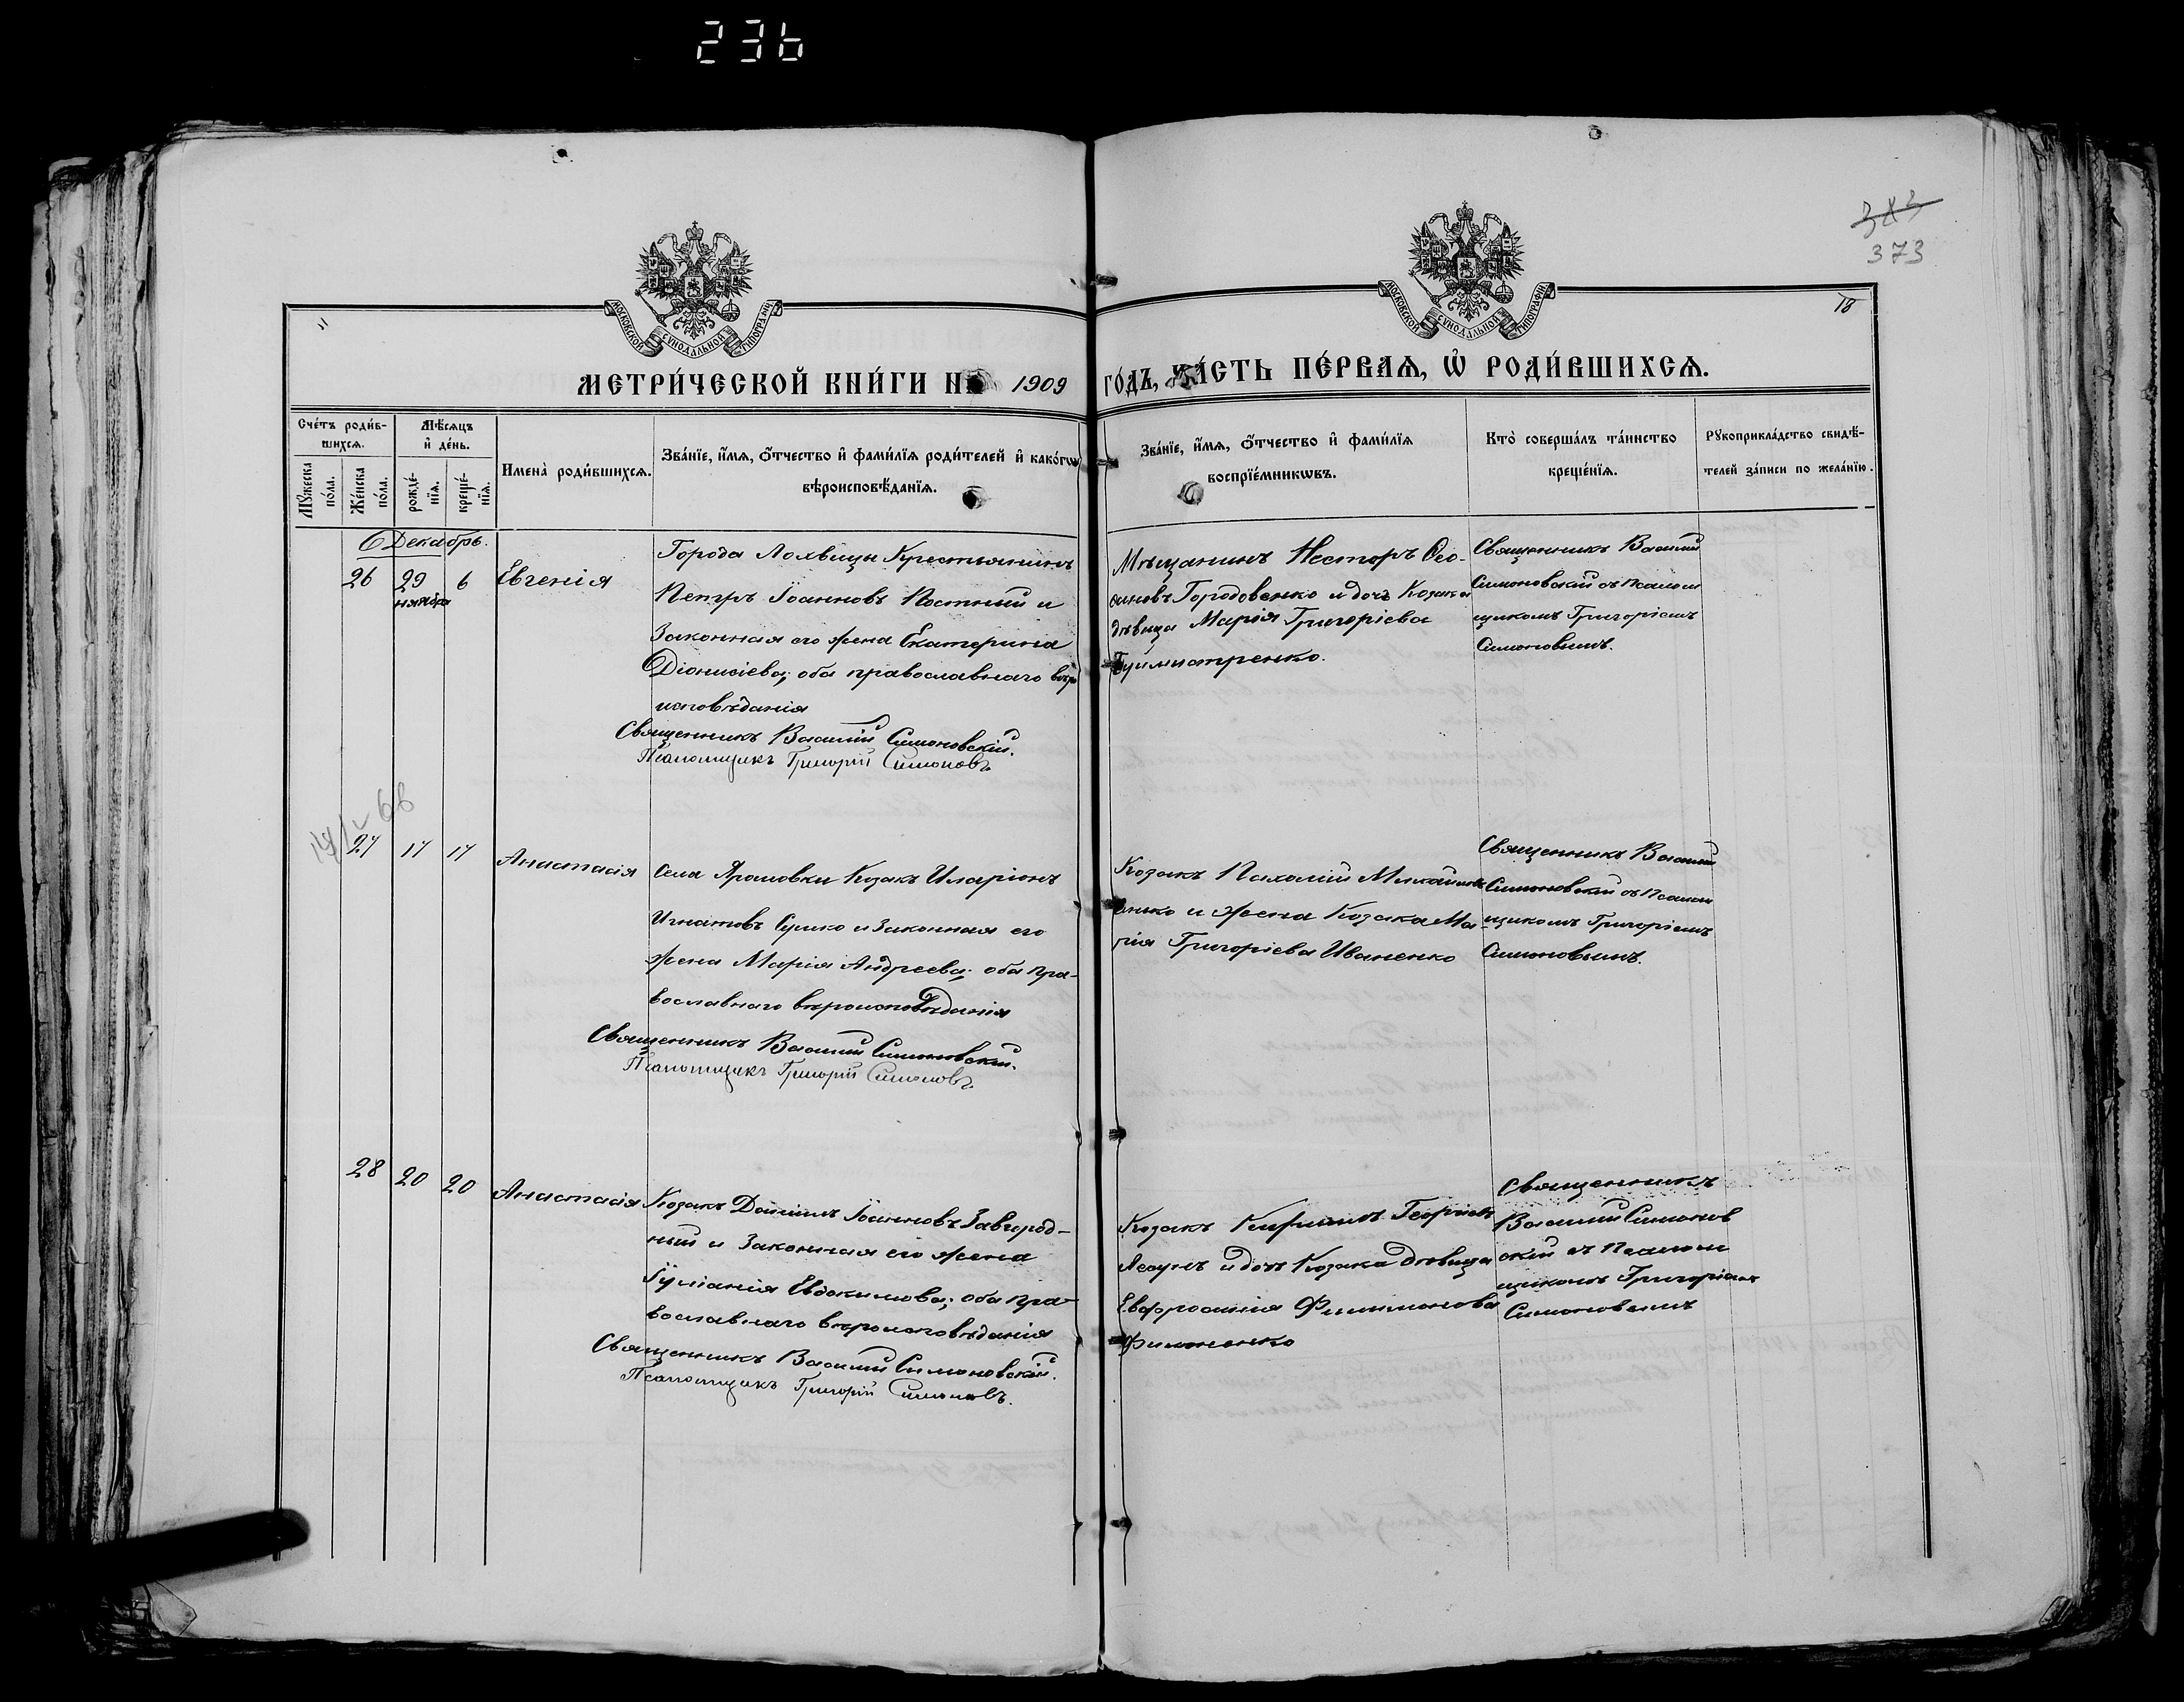 236
383
373
18
МОСКОВСКОЙ СУНОДАЛЬНОЙ ТИПОГРАФІИ
МОСКОВСКОЙ СУНОДАЛЬНОЙ ТИПОГРАФІИ
МЕТРИ́ЧЕСКОЙ КНИ́ГИ НА 1909 ГО́ДЪ, ЧА́СТЬ ПЕ́РВАѦ, Ѡ҆ РОДИ́ВШИХСѦ.
Сче́тъ роди́в-
шихсѧ.
Мꙋ́жеска по́ла.
Же́нска по́ла.
Мѣ́сѧцъ и҆ де́нь.
рожде́нїѧ.
креще́нїѧ.
Имена̀ роди́вшихсѧ.
Зва́нїе, и҆́мѧ, ѻ҆́тчество и҆ фами́лїѧ роди́телей и҆ како́гѡ
вѣроисповѣ́данїѧ.
Зва́нїе, и҆́мѧ, ѻ҆́тчество и҆ фами́лїѧ
воспрїе́мникѡвъ.
Кто̀ соверша́лъ та́инство
креще́нїѧ.
Рꙋкоприкла́дство свидѣ́-
телей за́писи по жела́нїю.
Декабрь.
26 29 ноября 6 Евгенія
Города Лохвицы Крестьянинъ
Петръ Іоанновъ Постный и
Законная его жена Екатерина
Діонисіева; оба православнаго вѣро
исповѣданія
Священникъ Василій Симоновскій.
Псаломщикъ Григорій Симоновъ.
Мѣщанинъ Несторъ Ѳео-
Городовенко и дочь Козака
дѣвица Марія Григоріева
Священникъ Василій
Симоновскій съ Псалом
щикомъ Григоріемъ
Симоновымъ.
27 17 17 Анастасія
Села Яромовки Козакъ Иларіонъ
Игнатовъ Сушко и Законная его
жена Марія Андреева; оба пра-
вославнаго вѣроисповѣданія
Священникъ Василій Симоновскій.
Псаломщикъ Григорій Симоновъ.
Козакъ Пахомій
енко и жена Козака Ма-
рія Григоріева Иваненко
Священникъ Василій
Симоновскій съ Псалом
щикомъ Григоріемъ
Симоновымъ.
28 20 20 Анастасія
Козакъ Даніилъ Іоанновъ Завгород-
ній и Законная его жена
Іуліанія Евдокимова; оба пра-
вославнаго вѣроисповѣданія
Священникъ Василій Симоновскій.
Псаломщикъ Григорій Симоновъ.
Козакъ Кириллъ Георгіевъ
и дочь Козака дѣвица
Евфросинія Филимонова
Филоненко
Священникъ
Василій Симонов
скій съ Псалом
щикомъ Григоріемъ
Симоновымъ